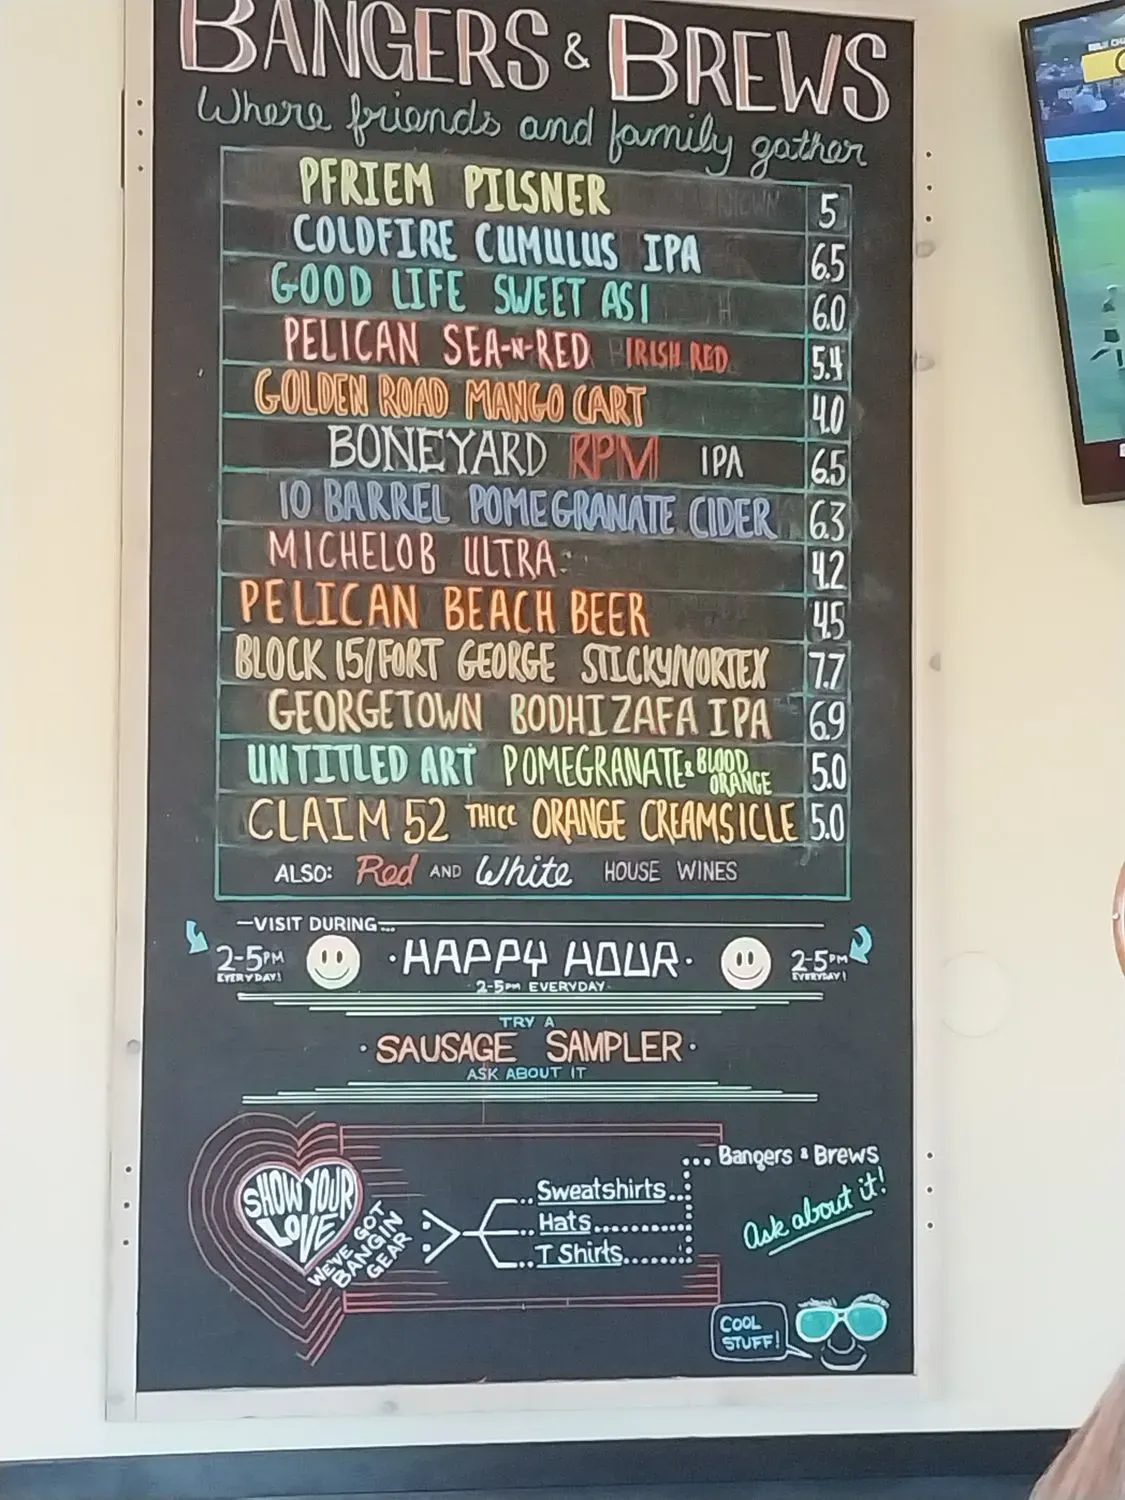 BANGERS & BREWS
Where friends and family gather
PFRIEM PILSNER 5
COLDFIRE CUMULUS IPA 6.5
GOOD LIFE SWEET AS! 6.0
PELICAN SEA-N-RED IRISH RED 5.4
GOLDEN ROAD MANGO CART 4.0
BONEYARD RPM IPA 6.5
10 BARREL POMEGRANATE CIDER 6.3
MICHELOB ULTRA 4.2
PELICAN BEACH BEER 4.5
BLOCK 15/FORT GEORGE STICKY/VORTEX 7.7
GEORGETOWN BODHIZAFA IPA 6.9
UNTITLED ART POMEGRANATE & BLOOD ORANGE 5.0
CLAIM 52 THICC ORANGE CREAMSICLE 5.0
ALSO: Red AND White HOUSE WINES
—VISIT DURING...
2-5PM EVERYDAY!
·HAPPY HOUR·
2-5PM EVERYDAY!
2-5PM EVERYDAY
TRY A
·SAUSAGE SAMPLER·
ASK ABOUT IT
SHOW YOUR
LOVE
WE'VE GOT
BANGIN
GEAR
Sweatshirts
Hats
T Shirts
... Bangers & Brews
Ask about it!
COOL
STUFF!